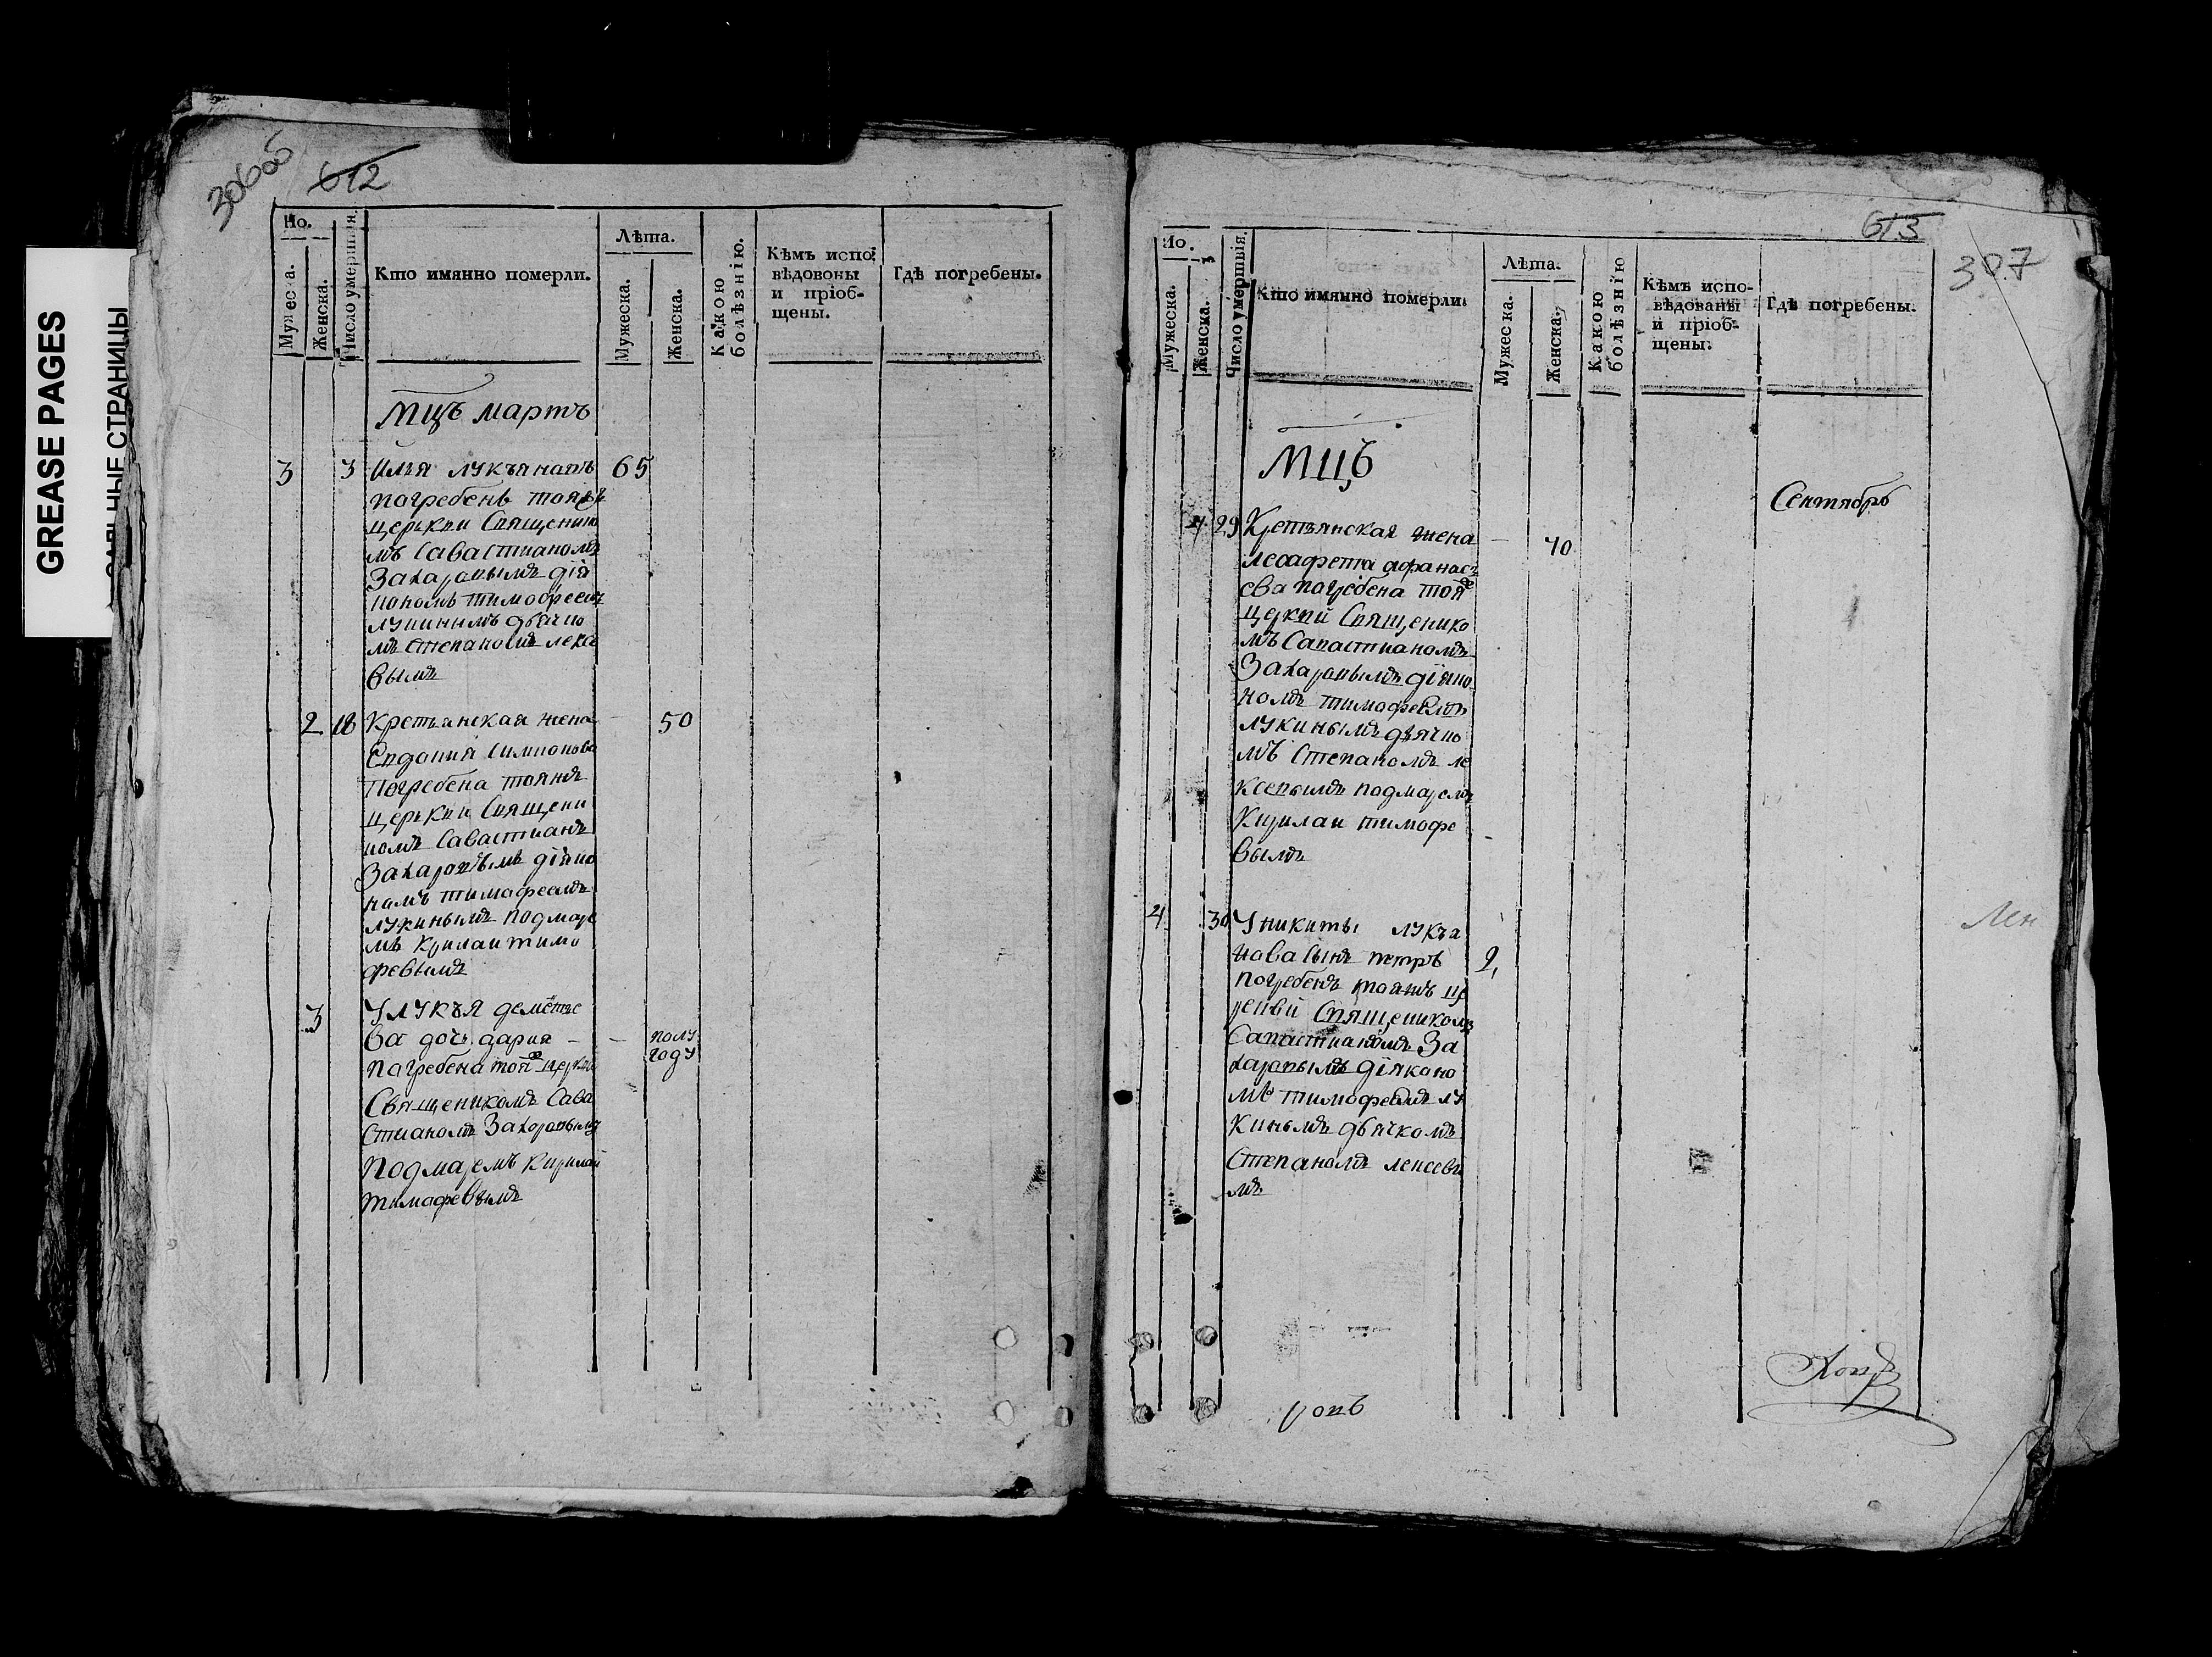 GREASE PAGES
САЛЬНЫЕ СТРАНИЦЫ
306об
612
Но.
Мужеска.
Женска.
Число умертвія.
Кто имянно померли.
Лѣта.
Мужеска.
Женска.
Какою болѣзнію.
Кѣмъ испо-
вѣдовоны
и пріоб-
щены.
Гдѣ погребены.
мцъ мартъ
3 3 Илья лукъяновъ 65
погребенъ тояжъ
церькви Священико
мъ Савастианомъ
Захаровымъ дія
кономъ тимофеемъ
лукинымъ дьячко
мъ степаномъ лексе
вымъ
2 18 Крстьянская жена 50
Евдокия симионова
Погребена тояжъ
церькви Священи
комъ Савастианъ
Захаровымъ діяко
номъ тимафеемъ
лукинымъ подмаре
мъ Кирилаи тимо
февымъ
3 У лукъя дементье
ва дочь дария – – полу
году
погребена тояж церкви
Священикомъ Сава
стианомъ Захоровымъ
подмаремъ Кирилаи
тимафевымъ
613
307
Но.
Мужеска.
Женска.
Число умертвія.
Кто имянно померли.
Лѣта.
Мужеска.
Женска.
Какою болѣзнію
Кѣмъ испо-
вѣдованы
и пріоб-
щены.
Гдѣ погребены.
МЦЪ
Сентябръ
4 29 Крстьянская жена – 40
афанась
ева погребена тояж
церкви Священико
мъ Савастианомъ
Захаровымъ діяко
номъ тимафеемъ
лукинымъ дьячко
мъ Степаномъ ле
ксевымъ подмаремъ
Кирилаи тимофе
вымъ
4 30 У никиты лукъя
нова сынъ петръ 2
погребенъ тояжъ це
рькви Священикомъ
Савастианомъ За
харовымъ діяконо
мъ тимофеемъ лу
кинымъ дьячкомъ
Степаномъ лексевы
мъ
Лен